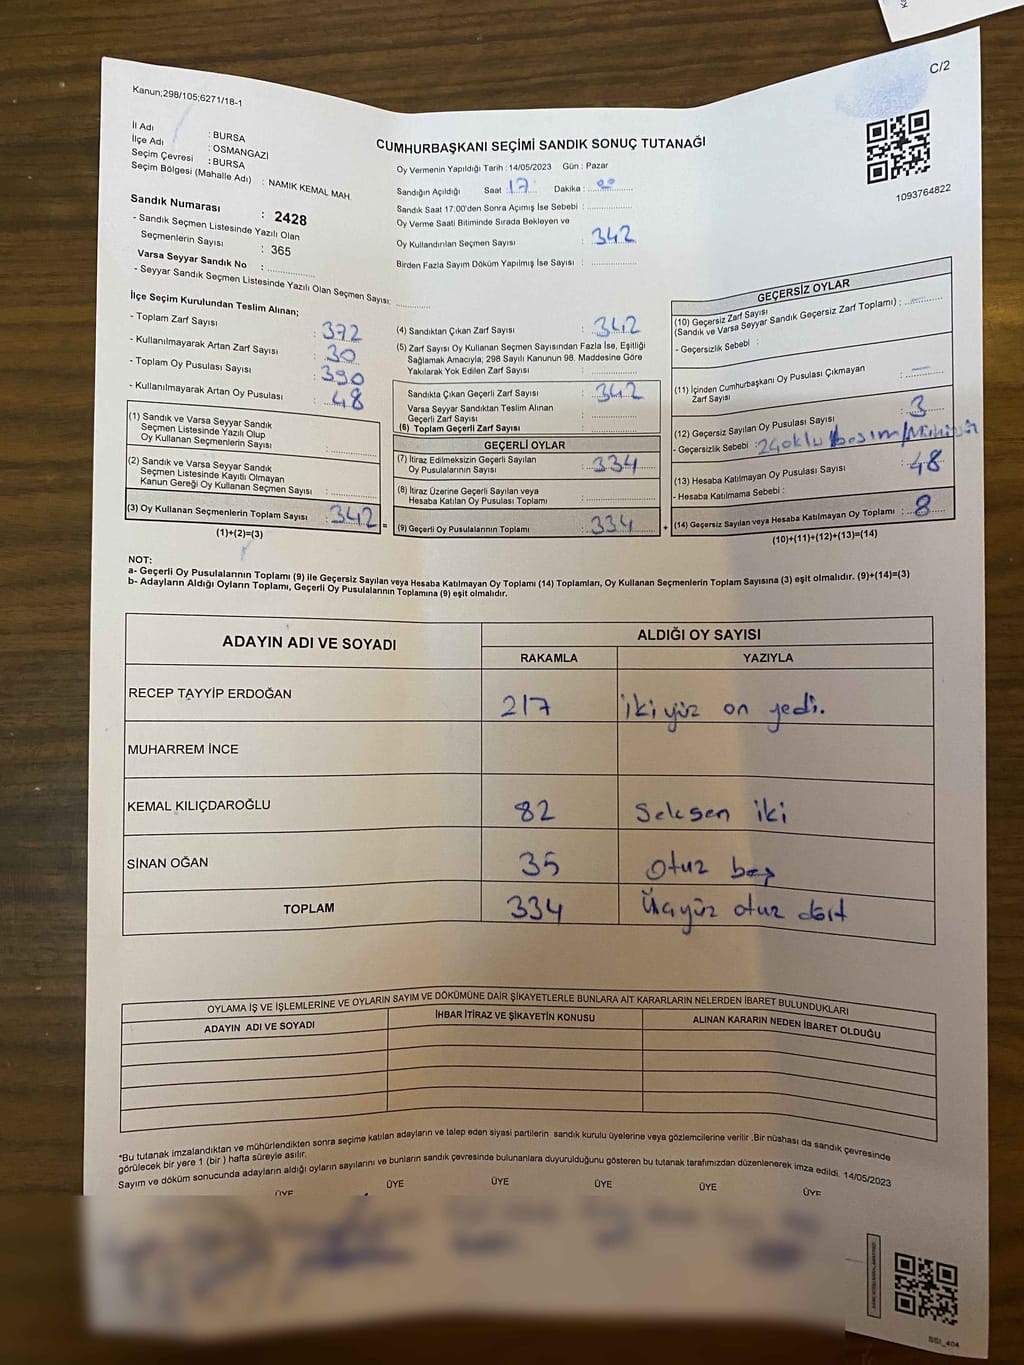 C/2
Kanun;298/105;6271/18-1
1093764822
İl Adı : BURSA
İlçe Adı : OSMANGAZİ
Seçim Çevresi : BURSA
Seçim Bölgesi (Mahalle Adı) : NAMIK KEMAL MAH.
Sandık Numarası : 2428
- Sandık Seçmen Listesinde Yazılı Olan
Seçmenlerin Sayısı : 365
Varsa Seyyar Sandık No : ..............
- Seyyar Sandık Seçmen Listesinde Yazılı Olan Seçmen Sayısı: ............
CUMHURBAŞKANI SEÇİMİ SANDIK SONUÇ TUTANAĞI
Oy Vermenin Yapıldığı Tarih : 14/05/2023 Gün : Pazar
Sandığın Açıldığı Saat : 17 Dakika : 00
Sandık Saat 17:00'den Sonra Açımış İse Sebebi : ..............
Oy Verme Saati Bitiminde Sırada Bekleyen ve
Oy Kullandırılan Seçmen Sayısı : 342
Birden Fazla Sayım Döküm Yapılmış İse Sayısı : ..............
İlçe Seçim Kurulundan Teslim Alınan;
- Toplam Zarf Sayısı : 372
- Kullanılmayarak Artan Zarf Sayısı : 30
- Toplam Oy Pusulası Sayısı : 390
- Kullanılmayarak Artan Oy Pusulası : 48
(1) Sandık ve Varsa Seyyar Sandık
Seçmen Listesinde Yazılı Olup
Oy Kullanan Seçmenlerin Sayısı : ..............
(2) Sandık ve Varsa Seyyar Sandık
Seçmen Listesinde Kayıtlı Olmayan
Kanun Gereği Oy Kullanan Seçmen Sayısı : ..............
(3) Oy Kullanan Seçmenlerin Toplam Sayısı : 342 =
(1)+(2)=(3)
(4) Sandıktan Çıkan Zarf Sayısı : 342
(5) Zarf Sayısı Oy Kullanan Seçmen Sayısından Fazla İse, Eşitliği
Sağlamak Amacıyla; 298 Sayılı Kanunun 98. Maddesine Göre
Yakılarak Yok Edilen Zarf Sayısı : ..............
Sandıkta Çıkan Geçerli Zarf Sayısı : 342
Varsa Seyyar Sandıktan Teslim Alınan
Geçerli Zarf Sayısı : ..............
(6) Toplam Geçerli Zarf Sayısı : ..............
GEÇERLİ OYLAR
(7) İtiraz Edilmeksizin Geçerli Sayılan
Oy Pusulalarının Sayısı : 334
(8) İtiraz Üzerine Geçerli Sayılan veya
Hesaba Katılan Oy Pusulası Toplamı : ..............
(9) Geçerli Oy Pusulalarının Toplamı : 334 +
GEÇERSİZ OYLAR
(10) Geçersiz Zarf Sayısı
(Sandık ve Varsa Seyyar Sandık Geçersiz Zarf Toplamı) : —
- Geçersizlik Sebebi :
(11) İçinden Cumhurbaşkanı Oy Pusulası Çıkmayan
Zarf Sayısı : —
(12) Geçersiz Sayılan Oy Pusulası Sayısı : 3
- Geçersizlik Sebebi :
(13) Hesaba Katılmayan Oy Pusulası Sayısı : 48
- Hesaba Katılmama Sebebi :
(14) Geçersiz Sayılan veya Hesaba Katılmayan Oy Toplamı : 8
(10)+(11)+(12)+(13)=(14)
NOT:
a- Geçerli Oy Pusulalarının Toplamı (9) ile Geçersiz Sayılan veya Hesaba Katılmayan Oy Toplamı (14) Toplamları, Oy Kullanan Seçmenlerin Toplam Sayısına (3) eşit olmalıdır. (9)+(14)=(3)
b- Adayların Aldığı Oyların Toplamı, Geçerli Oy Pusulalarının Toplamına (9) eşit olmalıdır.
ADAYIN ADI VE SOYADI ALDIĞI OY SAYISI
RAKAMLA YAZIYLA
RECEP TAYYİP ERDOĞAN 217 iki yüz on yedi.
MUHARREM İNCE
KEMAL KILIÇDAROĞLU 82 Seksen iki
SİNAN OĞAN 35 Otuz beş
TOPLAM 334 Üçyüz otuz dört
OYLAMA İŞ VE İŞLEMLERİNE VE OYLARIN SAYIM VE DÖKÜMÜNE DAİR ŞİKAYETLERLE BUNLARA AİT KARARLARIN NELERDEN İBARET BULUNDUKLARI
ADAYIN ADI VE SOYADI İHBAR İTİRAZ VE ŞİKAYETİN KONUSU ALINAN KARARIN NEDEN İBARET OLDUĞU
*Bu tutanak imzalandıktan ve mühürlendikten sonra seçime katılan adayların ve talep eden siyasi partilerin sandık kurulu üyelerine veya gözlemcilerine verilir .Bir nüshası da sandık çevresinde
görülecek bir yere 1 (bir ) hafta süreyle asılır.
Sayım ve döküm sonucunda adayların aldığı oyların sayılarını ve bunların sandık çevresinde bulunanlara duyurulduğunu gösteren bu tutanak tarafımızdan düzenlenerek imza edildi. 14/05/2023
ÜYE ÜYE ÜYE ÜYE ÜYE ÜYE
SSI_404